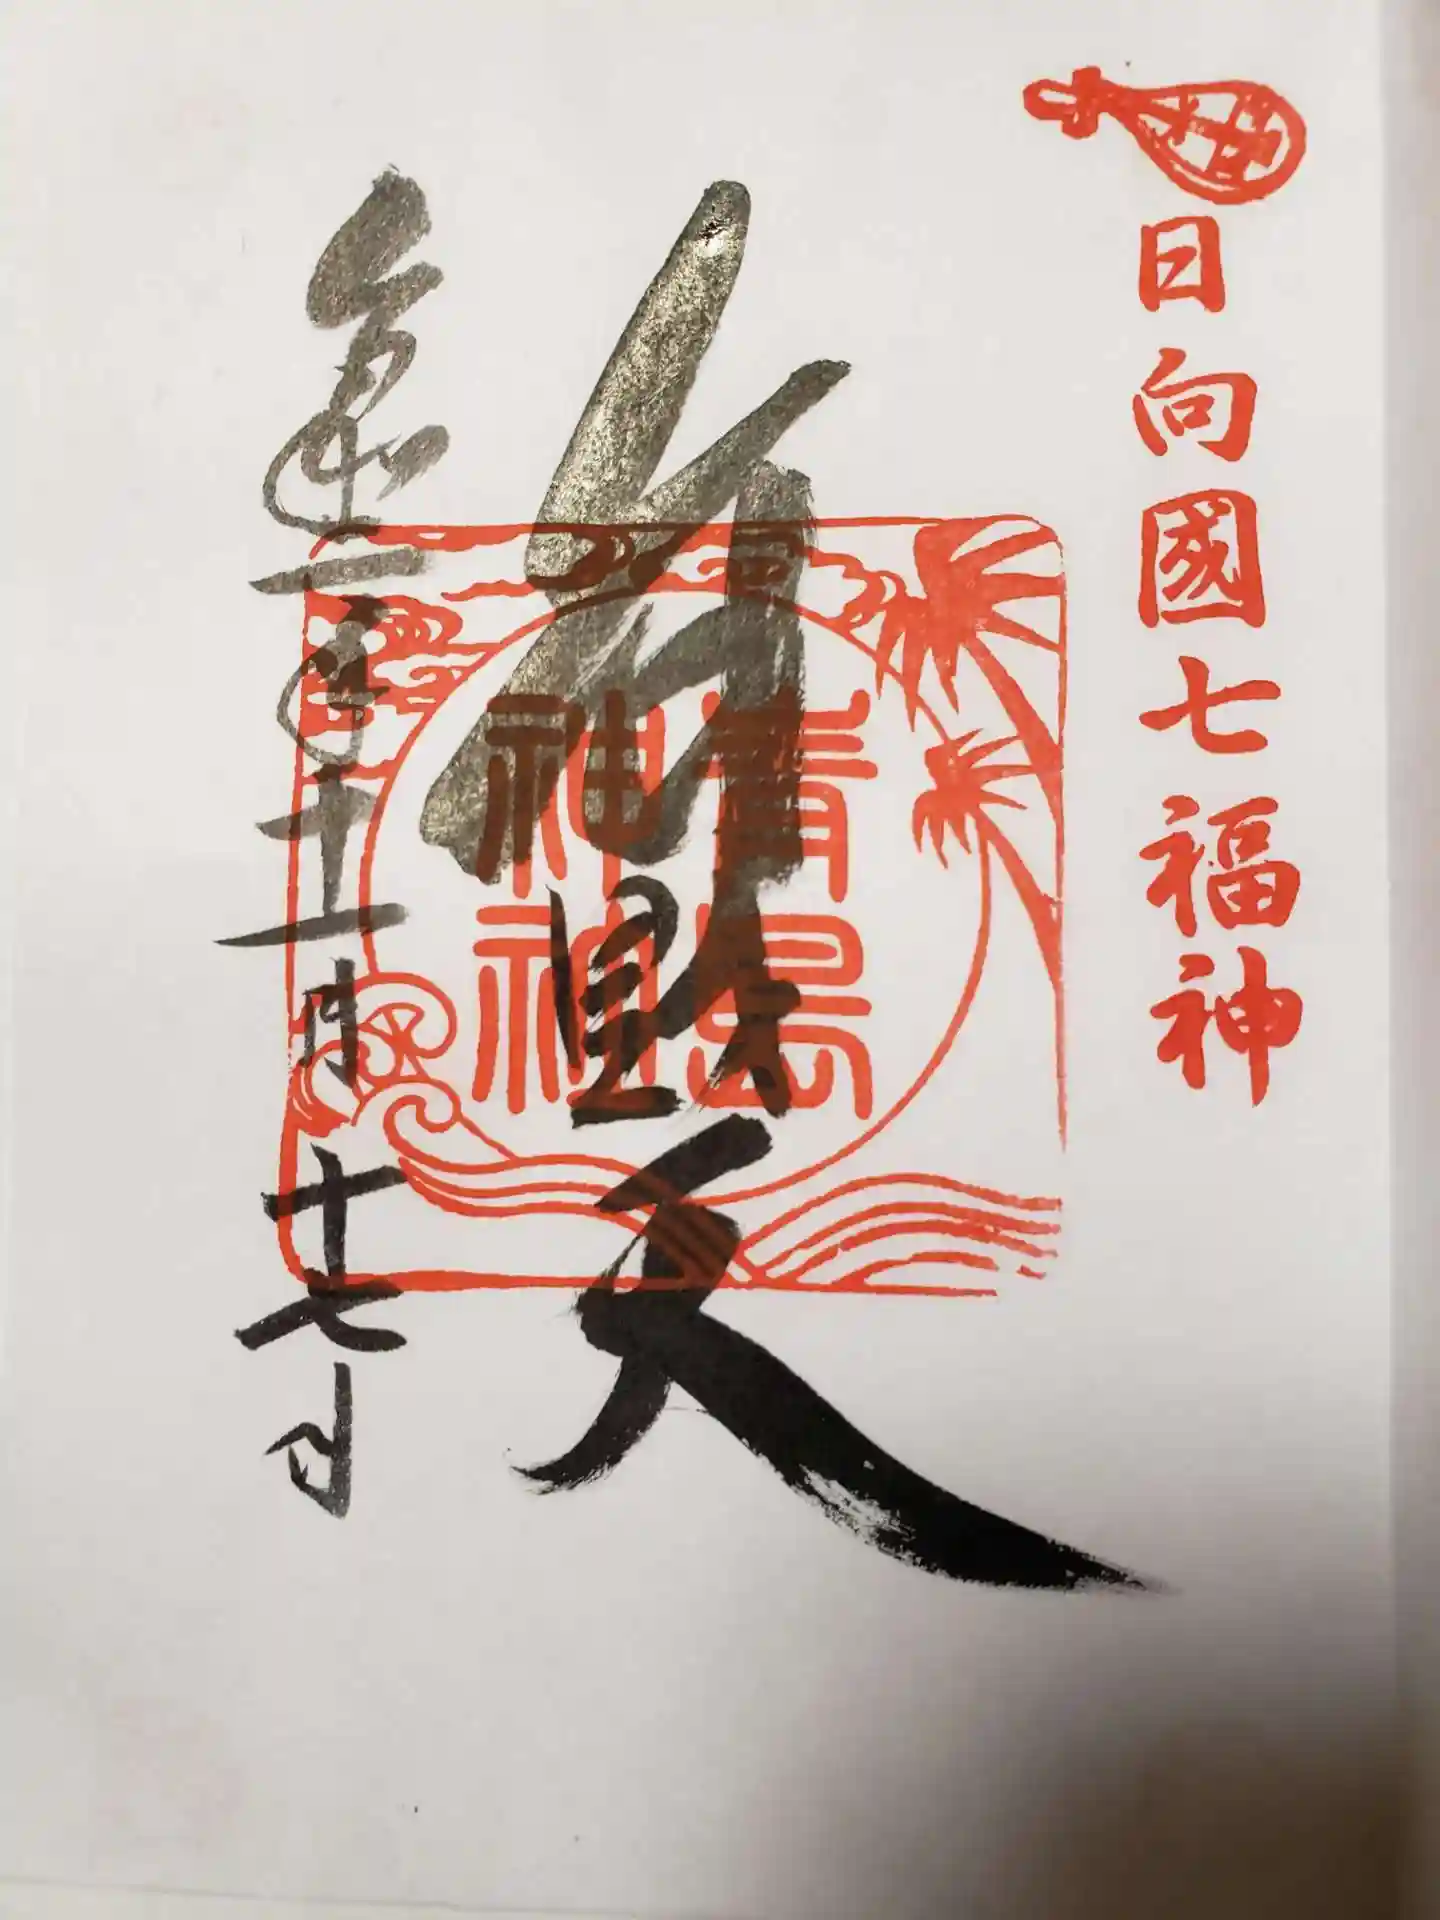 日向國七福神
辨財天
青島
神社
令和二年十一月十七日